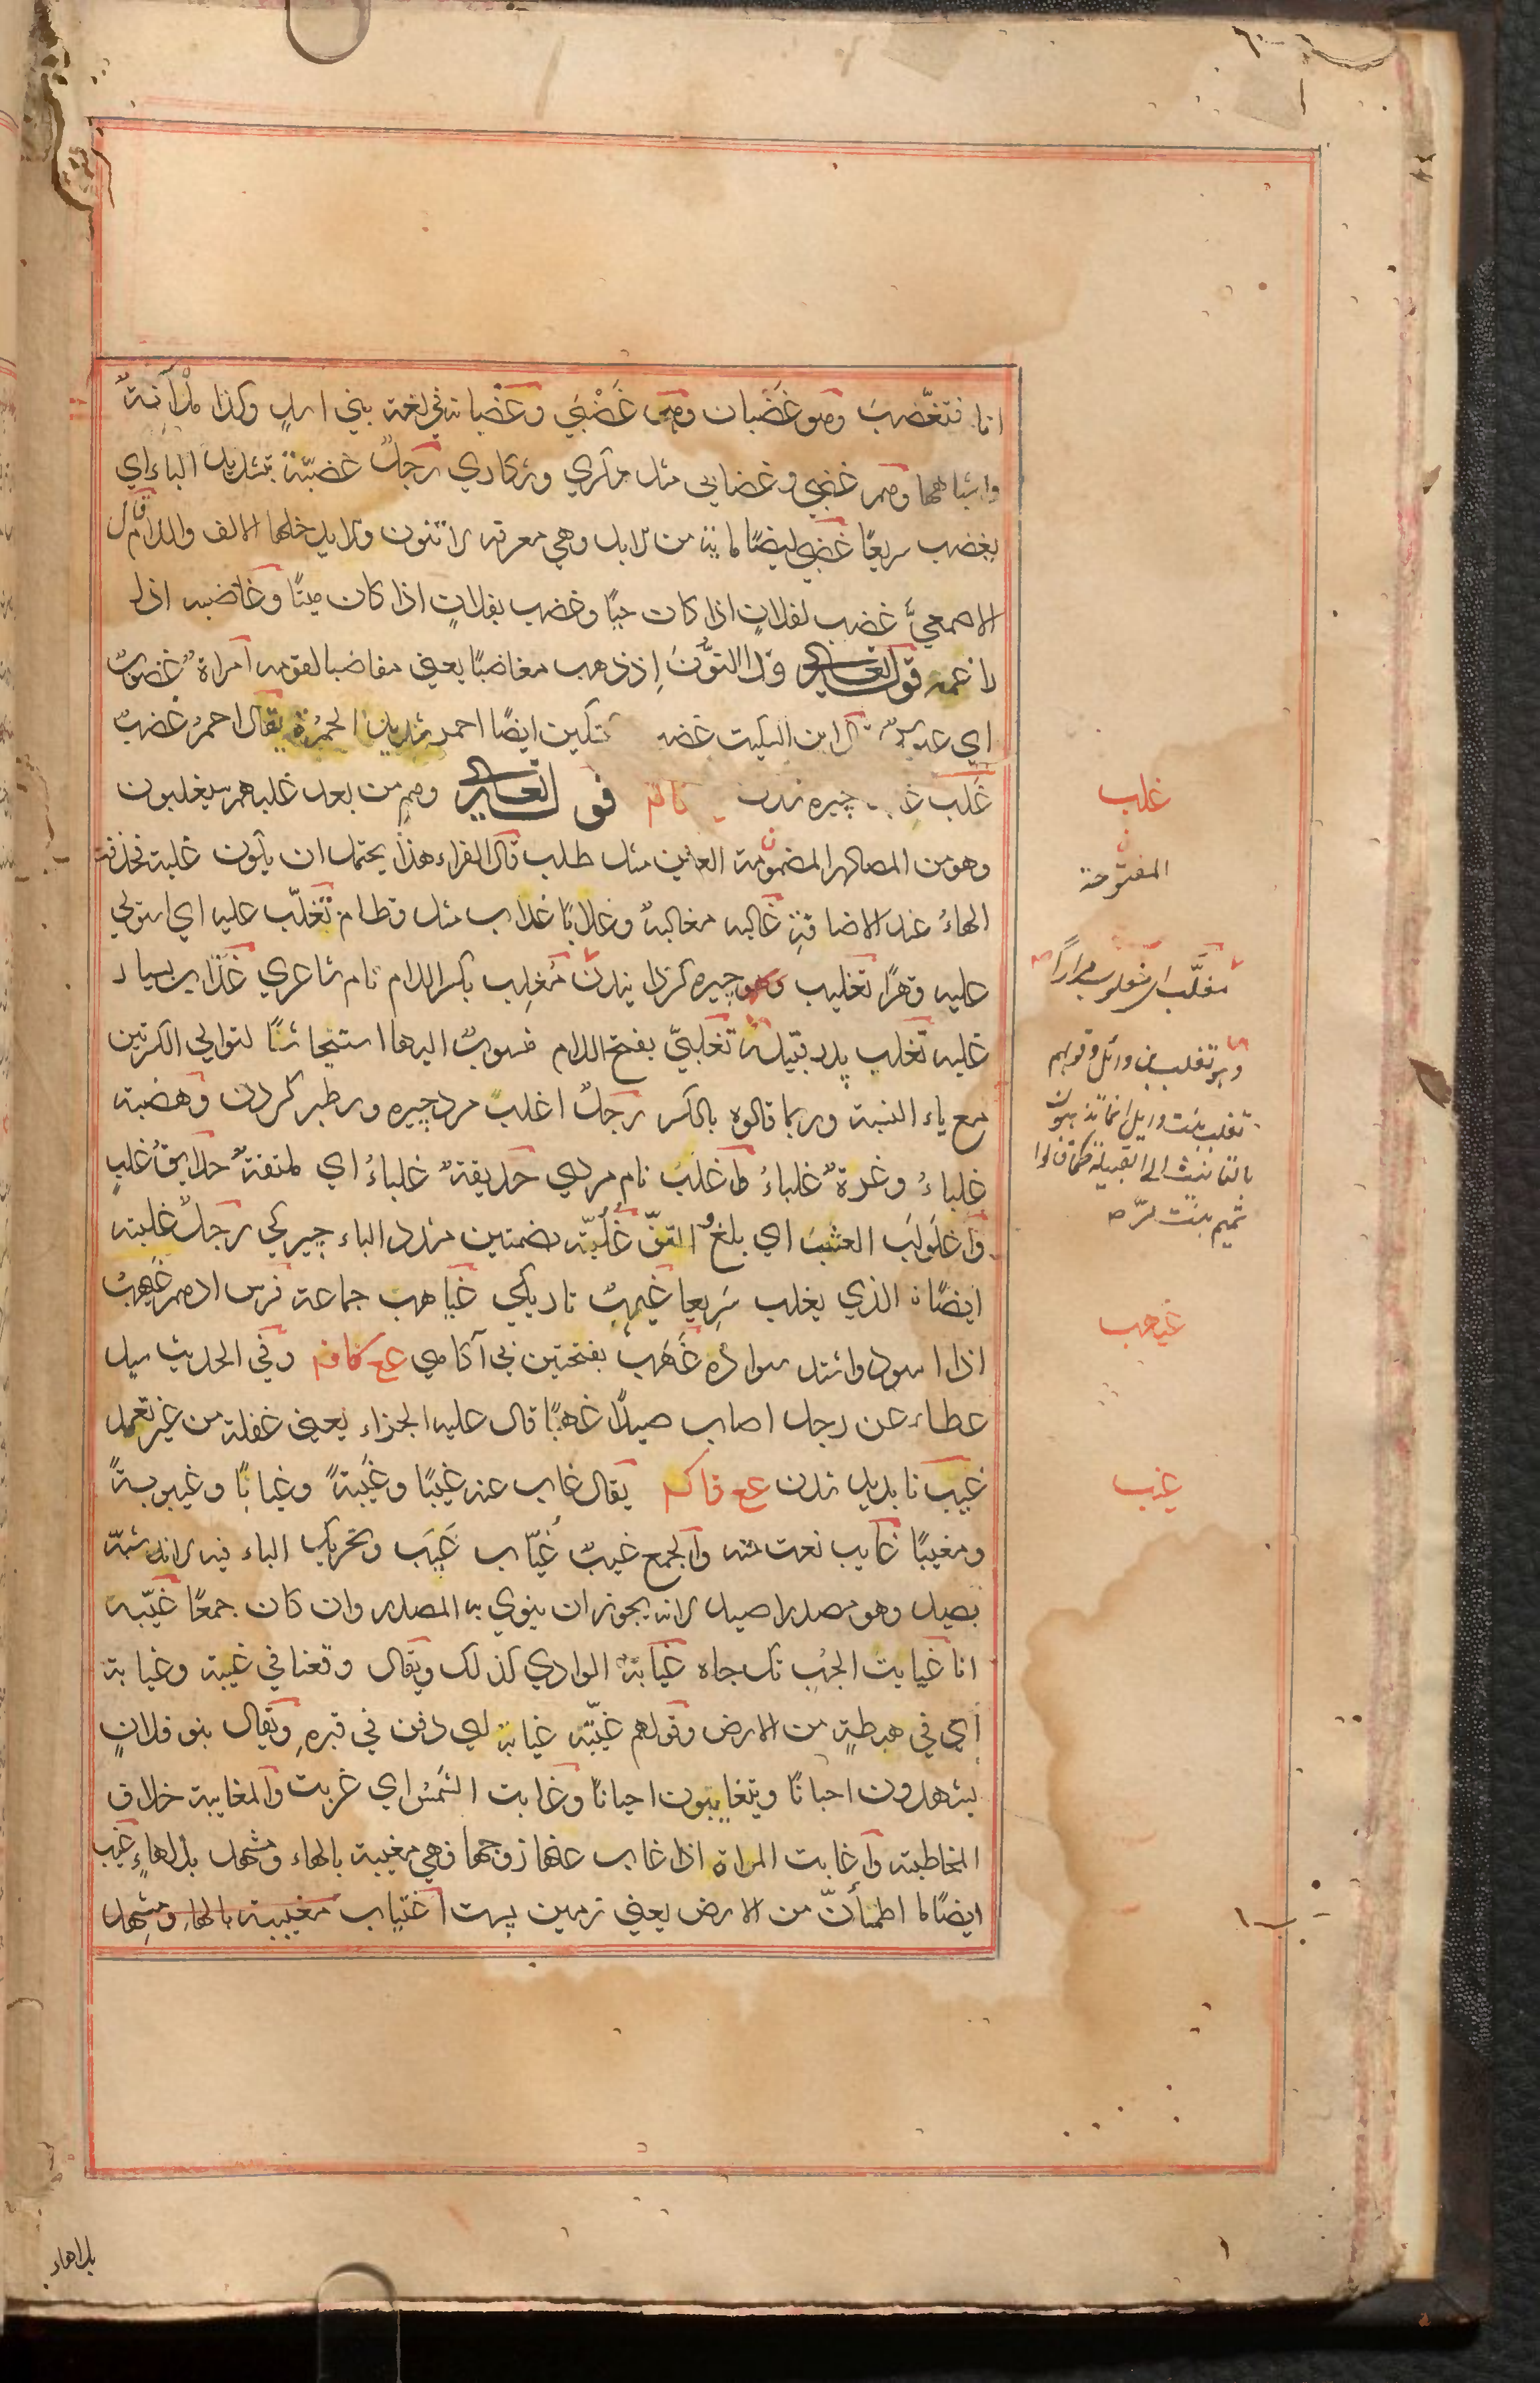 انا فتغضّب وهو غَضْبان وهى غَضْبَى وغضبانة في لغة بني اسدٍ وكذا ملآنةٌ
واشباههما وهم غضبى وغضابى مثل سكري وسكاري رجلٌ غضبّة بتشديد الباء اي
يغضب سريعًا غضبي ايضًا مائة من الابل وهي معرفة لا تنون ولا يدخلها الالف واللام قال
الاصمعيّ غضب لفلانٍ اذا كان حيًا وغضب بفلانٍ اذا كان ميتًا وغاضبه اذا
راغمه قوله تعالى وذا النّون اِذ ذهب مغاضبًا يعني مغاضبا لقومه امراةٌ غضوبٌ
اي عبوس قال ابن السكيت غضب تسكين ايضًا احمر شديد الحمرة يقال احمرُ غضبٌ
غَلَب چيره شدن قوله تعالى وهم من بعد غلبهم سيغلبون
وهو من المصادر المضمومة العين مثل طلب قال الفراء هذا يحتمل ان يكون غلبة فحذفت
الهاءُ عند الاضافةِ غالبه مغالبةً وغلابًا غلاب مثل قطام تغلّب عليه اي استولي
عليه قهرًا تغليب چيره كردانيدن مُغلِب بكسر اللام نام شاعري غلّاب بسيار
غلبه تغلب پدر قبيلة تغلبيّ بفتح اللام منسوبٌ اليها استيحاشًا لتوالي الكسرتين
مع ياء النسبة وربما قالوه بالكسر رجلٌ اغلب مرد چيره وسطبر كردن وهضبة
غلباءُ وعزةٌ غلباءُ اغلب نام مردي حديقةٌ غلباءُ اي ملتفةٌ حدايقُ غلبٍ
واغلولَبَ العشبُ اي بلغ والتفّ غُلُبّة بضمتين مشدد الباء چيركي رجلٌ غلبة
ايضًا الذي يغلب سَريعا غيهبٌ تاريكي غياهب جماعة فرس ادهم غيهبٌ
اذا اسود واشتد سواده غَهَب بفتحتين بي آكاهي عع كافم وفي الحديث سيل
عطاء عن رجل اصاب صيدًا غهبًا قال عليه الجزاء يعني غفلة من غير تعمد
غيب ناپديد شدن عع فاكم يقال غاب عنه غيبًا وغيبةً وغيابًا وغيبوبةً
ومغيبًا غايب نعت منه والجمع غيبٌ غيّاب غَيَب وتحريك الياء فيه لانه شبّه
بصيد وهو مصدر اصيد لانه يجوز ان ينوي به المصدر وان كان جمعًا غيّبه
انا غيابت الجبّ تك چاه غيابةُ الوادي كذلك ويقال وقعنا في غيبة وغيابة
اي في هبطةٍ من الارض وقولهم غيّبه غيابة اي دفن في قبره ويقال بنو فلانٍ
يشهدون احيانًا ويتغايبون احيانًا وغابت الشمس اي غربت والمغايبة خلاف
المخاطبة واغابت المراة اذا غاب عنها زوجها فهي مغيبة بالهاء ومشهد بلا هاءٍ غيب
ايضًا ما اطمأنّ من الارض يعني زمين پست اغتياب مغيبة بالهاء ومشهد
غلب
المفتوحة
مغلّب اي مغلوب مرارًا
وهو تغلب بن وائل وقولهم
تغلب بنت وايل انما يذهبون
بالتانيث الي القبيلة كما قالوا
تميم بنت مرّ
غيهب
غيب
بلا هاء